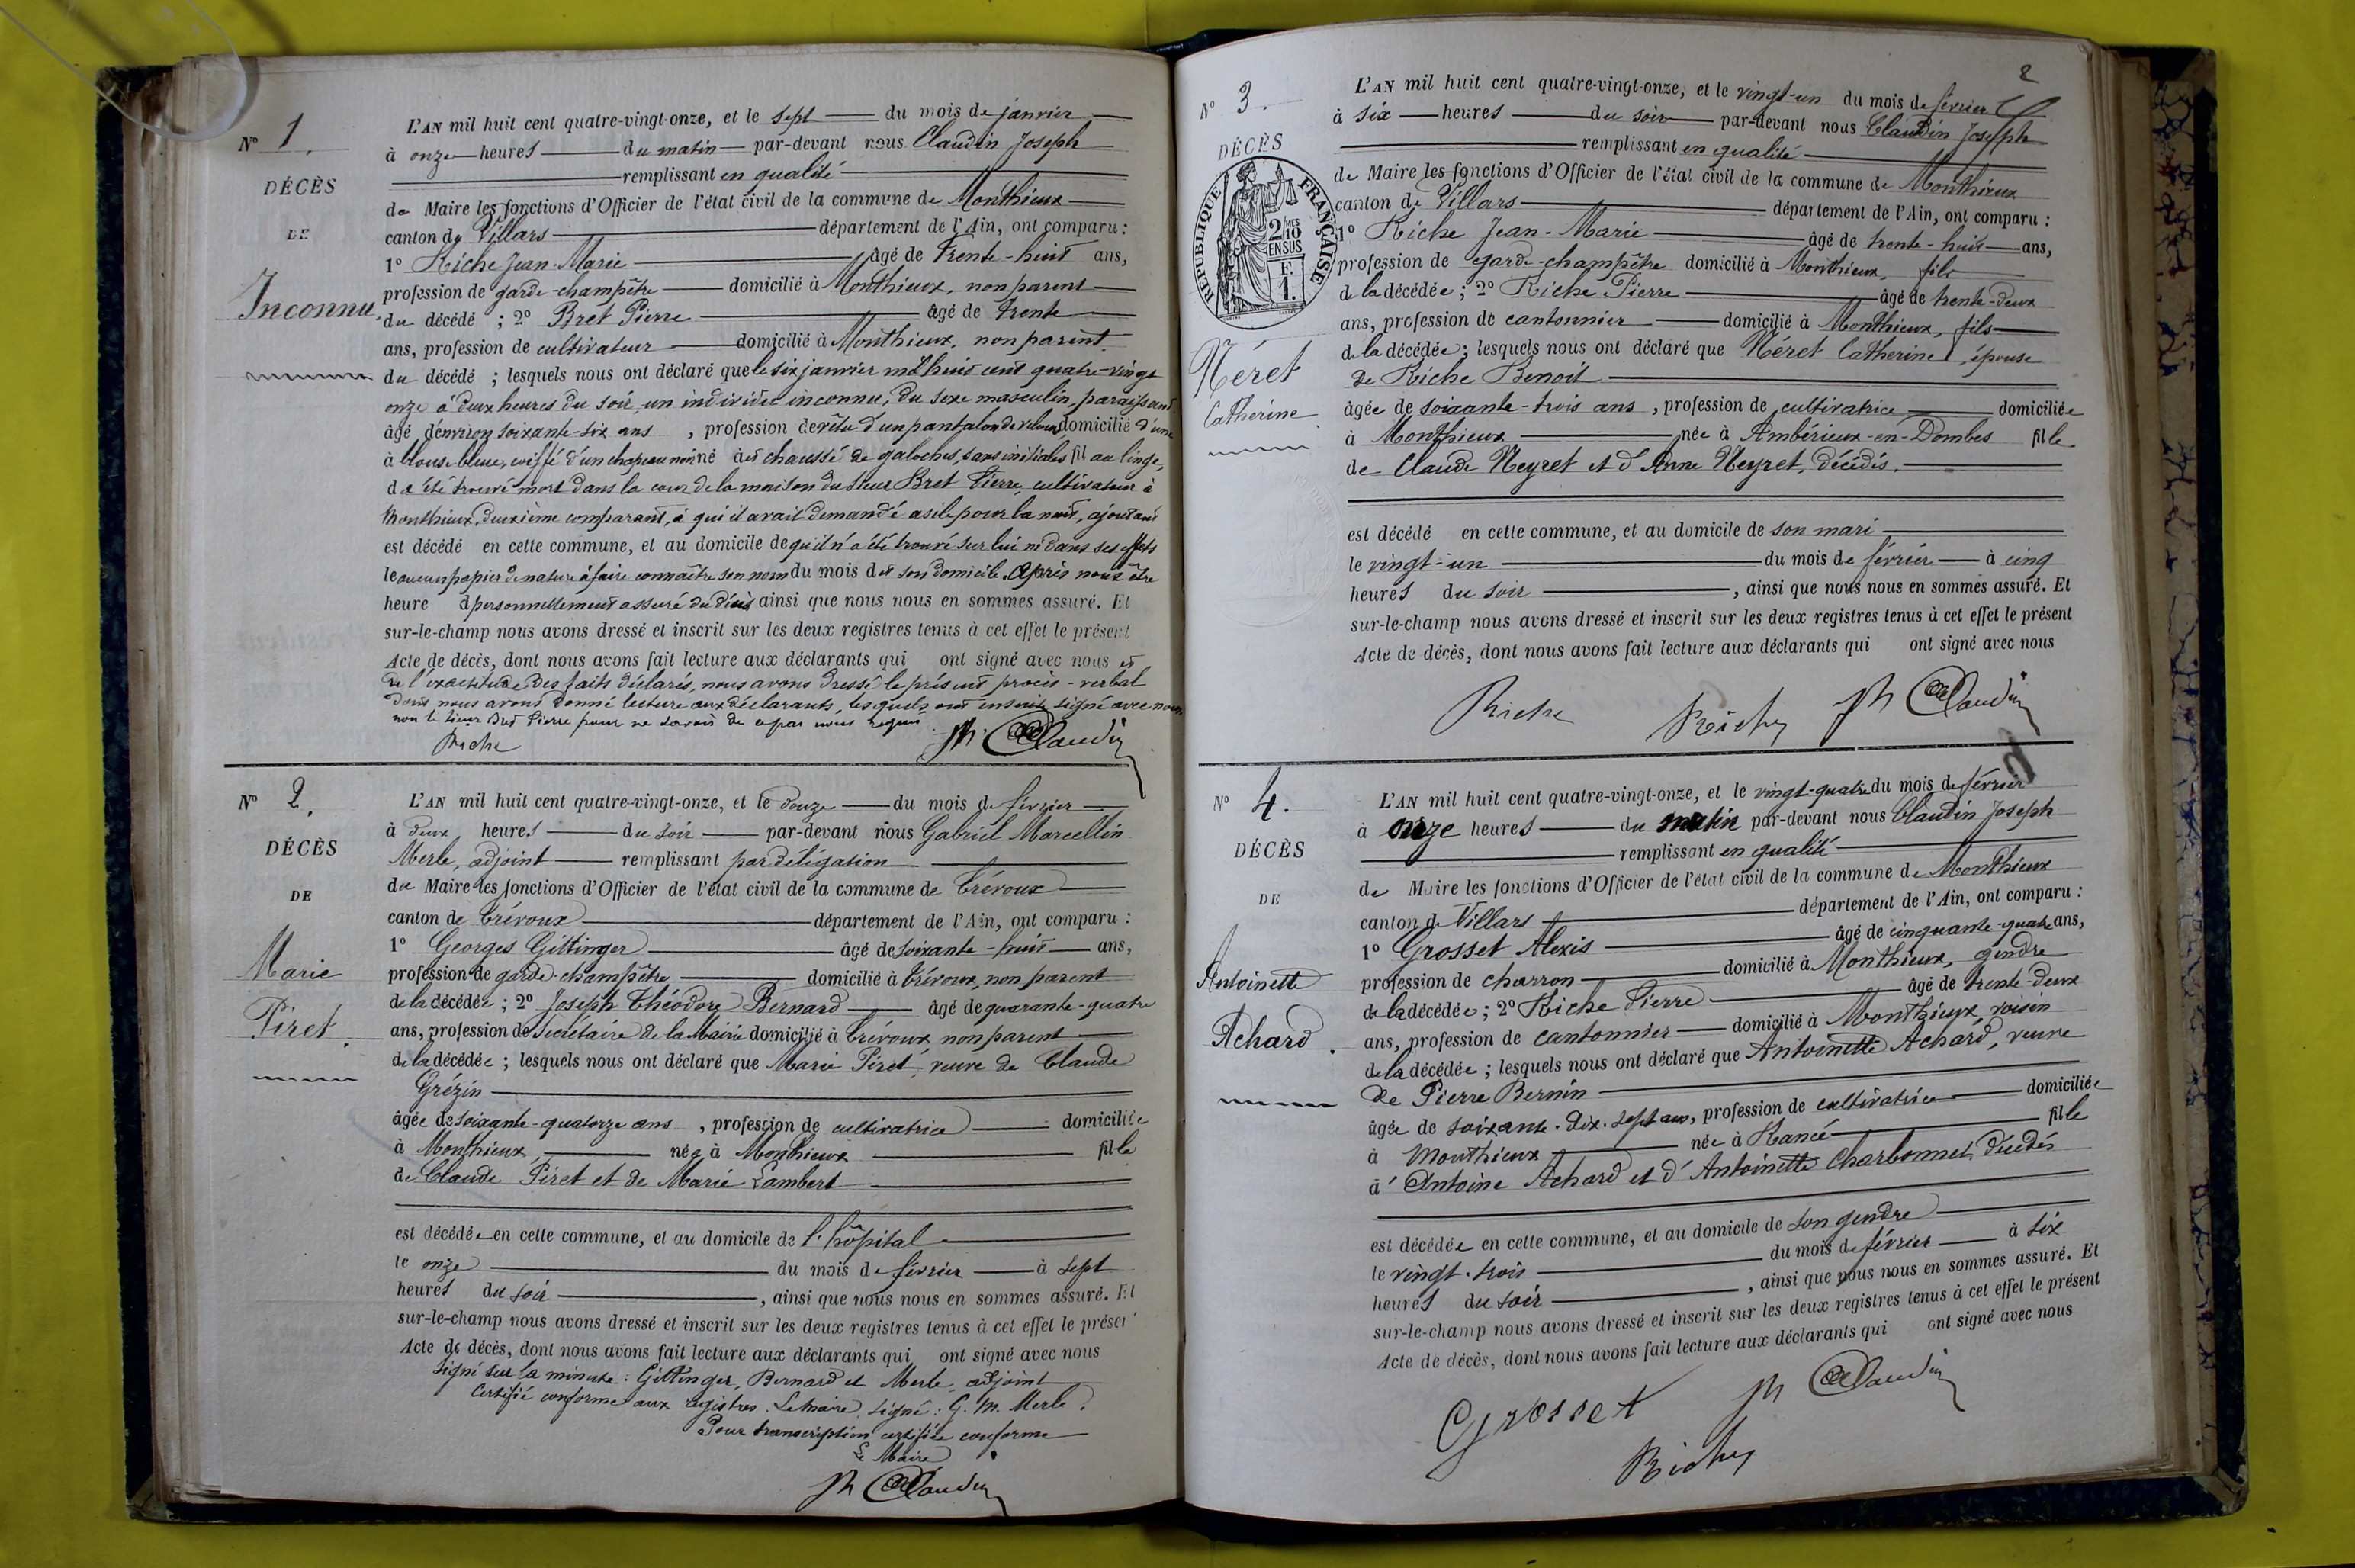 Nº 1.
DÉCÈS
DE
Inconnu.
L'AN mil huit cent quatre-vingt-onze, et le sept du mois de janvier
à onze heures du matin par-devant nous Claudin Joseph
remplissant en qualité
de Maire les fonctions d'Officier de l'état civil de la commune de Monthieux
canton de Villars département de l'Ain, ont comparu :
1º Riche Jean-Marie âgé de trente-huit ans,
profession de garde-champêtre domicilié à Monthieux, non parent
du décédé ; 2º Bret Pierre âgé de trente
ans, profession de cultivateur domicilié à Monthieux, non parent
du décédé ; lesquels nous ont déclaré que le six janvier mil huit cent quatre-vingt
onze à deux heures du soir, un individu inconnu, du sexe masculin, paraissant
âgé d'environ soixante-six ans , profession de vêtu d'un pantalon de velours, domicilié d'une
à blouse bleue, coiffé d'un chapeau noir, né à et chaussé de galoches, sans initiales fil au linge,
d a été trouvé mort dans la cour de la maison du sieur Bret Pierre, cultivateur à
Monthieux, deuxième comparant, à qui il avait demandé asile pour la nuit, ajoutant
est décédé en cette commune, et au domicile de qu'il n'a été trouvé sur lui ni dans ses effets
le aucun papier de nature à faire connaître son nom du mois de et son domicile. Après nous être
heure à personnellement assuré du décès ainsi que nous nous en sommes assuré. Et
sur-le-champ nous avons dressé et inscrit sur les deux registres tenus à cet effet le présent
Acte de décès, dont nous avons fait lecture aux déclarants qui ont signé avec nous et
de l'exactitude des faits déclarés, nous avons dressé le présent procès-verbal
dont nous avons donné lecture aux déclarants, lesquels ont ensuite signé avec nous,
non le sieur Bret Pierre pour ne savoir de ce par nous requis
Riche Jh Claudin
Nº 2.
DÉCÈS
DE
Marie
Piret.
L'AN mil huit cent quatre-vingt-onze, et le douze du mois de février
à deux heures du soir par-devant nous Gabriel Marcellin
Merle, adjoint remplissant par délégation
du Maire les fonctions d'Officier de l'état civil de la commune de Trévoux
canton de Trévoux département de l'Ain, ont comparu :
1º Georges Gittinger âgé de soixante-huit ans,
profession de garde-champêtre domicilié à Trévoux, non parent
de la décédée ; 2º Joseph Théodore Bernard âgé de quarante-quatre
ans, profession de secrétaire de la Mairie domicilié à Trévoux, non parent
de la décédée ; lesquels nous ont déclaré que Marie Piret, veuve de Claude
Grézin
âgée de soixante-quatorze ans , profession de cultivatrice domiciliée
à Monthieux, née à Monthieux fille
de Claude Piret et de Marie Lambert
est décédée en cette commune, et au domicile de l'hôpital
le onze du mois de février à sept
heures du soir , ainsi que nous nous en sommes assuré. Et
sur-le-champ nous avons dressé et inscrit sur les deux registres tenus à cet effet le présen
Acte de décès, dont nous avons fait lecture aux déclarants qui ont signé avec nous
Signé sur la minute : Gittinger, Bernard et Merle, adjoint
Certifié conforme aux registres. Le Maire, signé : G. M. Merle.
Pour transcription certifiée conforme
Le Maire
Jh Claudin
2
Nº 3.
DÉCÈS
RÉPUBLIQUE FRANÇAISE
2/10
EN SUS
F.
1.
Néret
Catherine
L'AN mil huit cent quatre-vingt-onze, et le vingt-un du mois de février
à six heures du soir par-devant nous Claudin Joseph
remplissant en qualité
de Maire les fonctions d'Officier de l'état civil de la commune de Monthieux
canton de Villars département de l'Ain, ont comparu :
1º Riche Jean-Marie âgé de trente-huit ans,
profession de garde-champêtre domicilié à Monthieux, fils
de la décédée ; 2º Riche Pierre âgé de trente-deux
ans, profession de cantonnier domicilié à Monthieux, fils
de la décédée ; lesquels nous ont déclaré que Néret Catherine, épouse
de Riche Benoit
âgée de soixante-trois ans , profession de cultivatrice domiciliée
à Monthieux née à Ambérieux-en-Dombes fille
de Claude Neyret et d'Anne Neyret, décédés.
est décédé en cette commune, et au domicile de son mari
le vingt-un du mois de février à cinq
heures du soir , ainsi que nous nous en sommes assuré. Et
sur-le-champ nous avons dressé et inscrit sur les deux registres tenus à cet effet le présent
Acte de décès, dont nous avons fait lecture aux déclarants qui ont signé avec nous
Riche Riche Jh Claudin
Nº 4.
DÉCÈS
DE
Antoinette
Achard.
L'AN mil huit cent quatre-vingt-onze, et le vingt-quatre du mois de février
à onze heures du matin par-devant nous Claudin Joseph
remplissant en qualité
de Maire les fonctions d'Officier de l'état civil de la commune de Monthieux
canton de Villars département de l'Ain, ont comparu :
1º Grosset Alexis âgé de cinquante-quatre ans,
profession de charron domicilié à Monthieux, gendre
de la décédée ; 2º Riche Pierre âgé de trente-deux
ans, profession de cantonnier domicilié à Monthieux, voisin
de la décédée ; lesquels nous ont déclaré que Antoinette Achard, veuve
de Pierre Bernin
âgée de soixante-dix-sept ans, profession de cultivatrice domiciliée
à Monthieux née à Rancé fille
d'Antoine Achard et d'Antoinette Charbonnet, décédés
est décédée en cette commune, et au domicile de son gendre
le vingt-trois du mois de février à six
heures du soir , ainsi que nous nous en sommes assuré. Et
sur-le-champ nous avons dressé et inscrit sur les deux registres tenus à cet effet le présent
Acte de décès, dont nous avons fait lecture aux déclarants qui ont signé avec nous
Grosset Jh Claudin
Riche